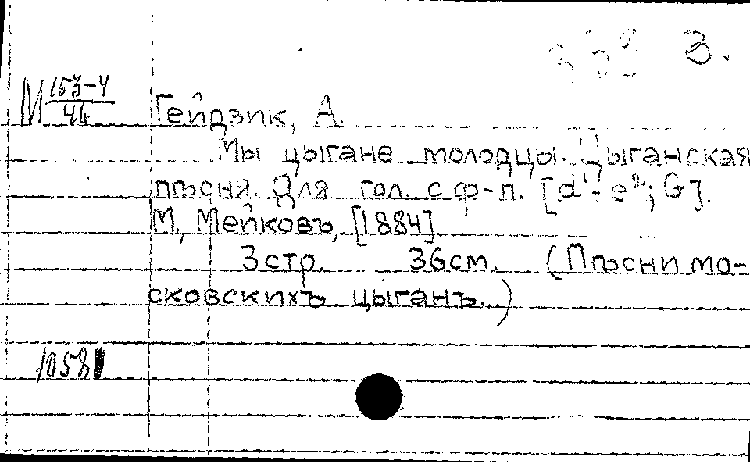 3.
М 153-4/44
Гейдзик, А.
Мы цыгане молодцы. Цыганская
пѣсня. Для гол. с ф-п. [d¹-e²; G].
М, Мейковъ, [1884].
3 стр. 36 см. (Пѣсни мо-
сковскихъ цыганъ.)